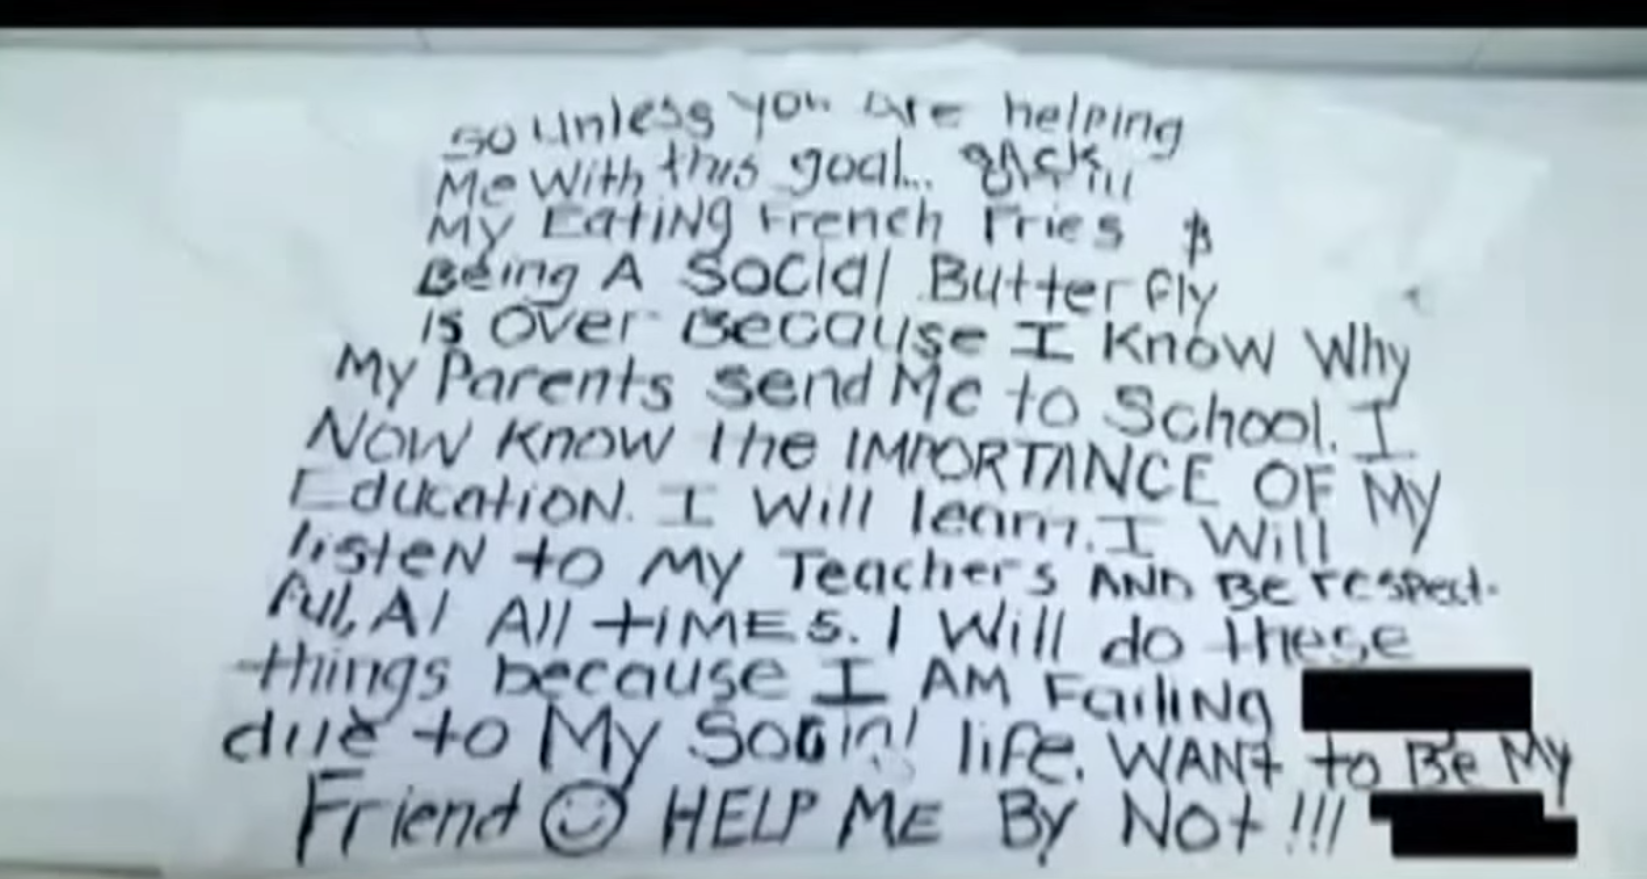 so Unless you are helping
Me With this goal... BACK!!!
My EatiNg French Fries &
Being A Social Butterfly
is Over Because I Know Why
My Parents send Me to School. I
Now Know the IMPORTANCE OF My
EducatioN. I Will learn. I Will
listeN to My Teachers AND Be respect-
ful, At All tiMEs. I Will do these
things because I AM FailiNg
due to My Social life. WANt to Be My
Friend ☺ HELP ME By Not!!!